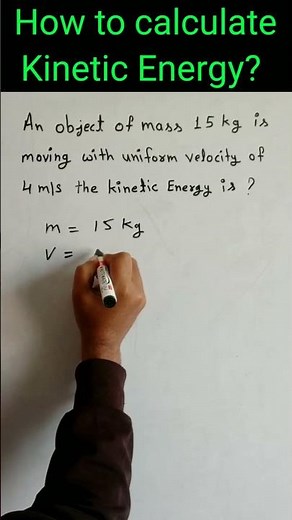 How to calculate
Kinetic Energy?
An object of mass 15 kg is
moving with uniform velocity of
4 m/s the kinetic Energy is ?
m = 15 kg
V =